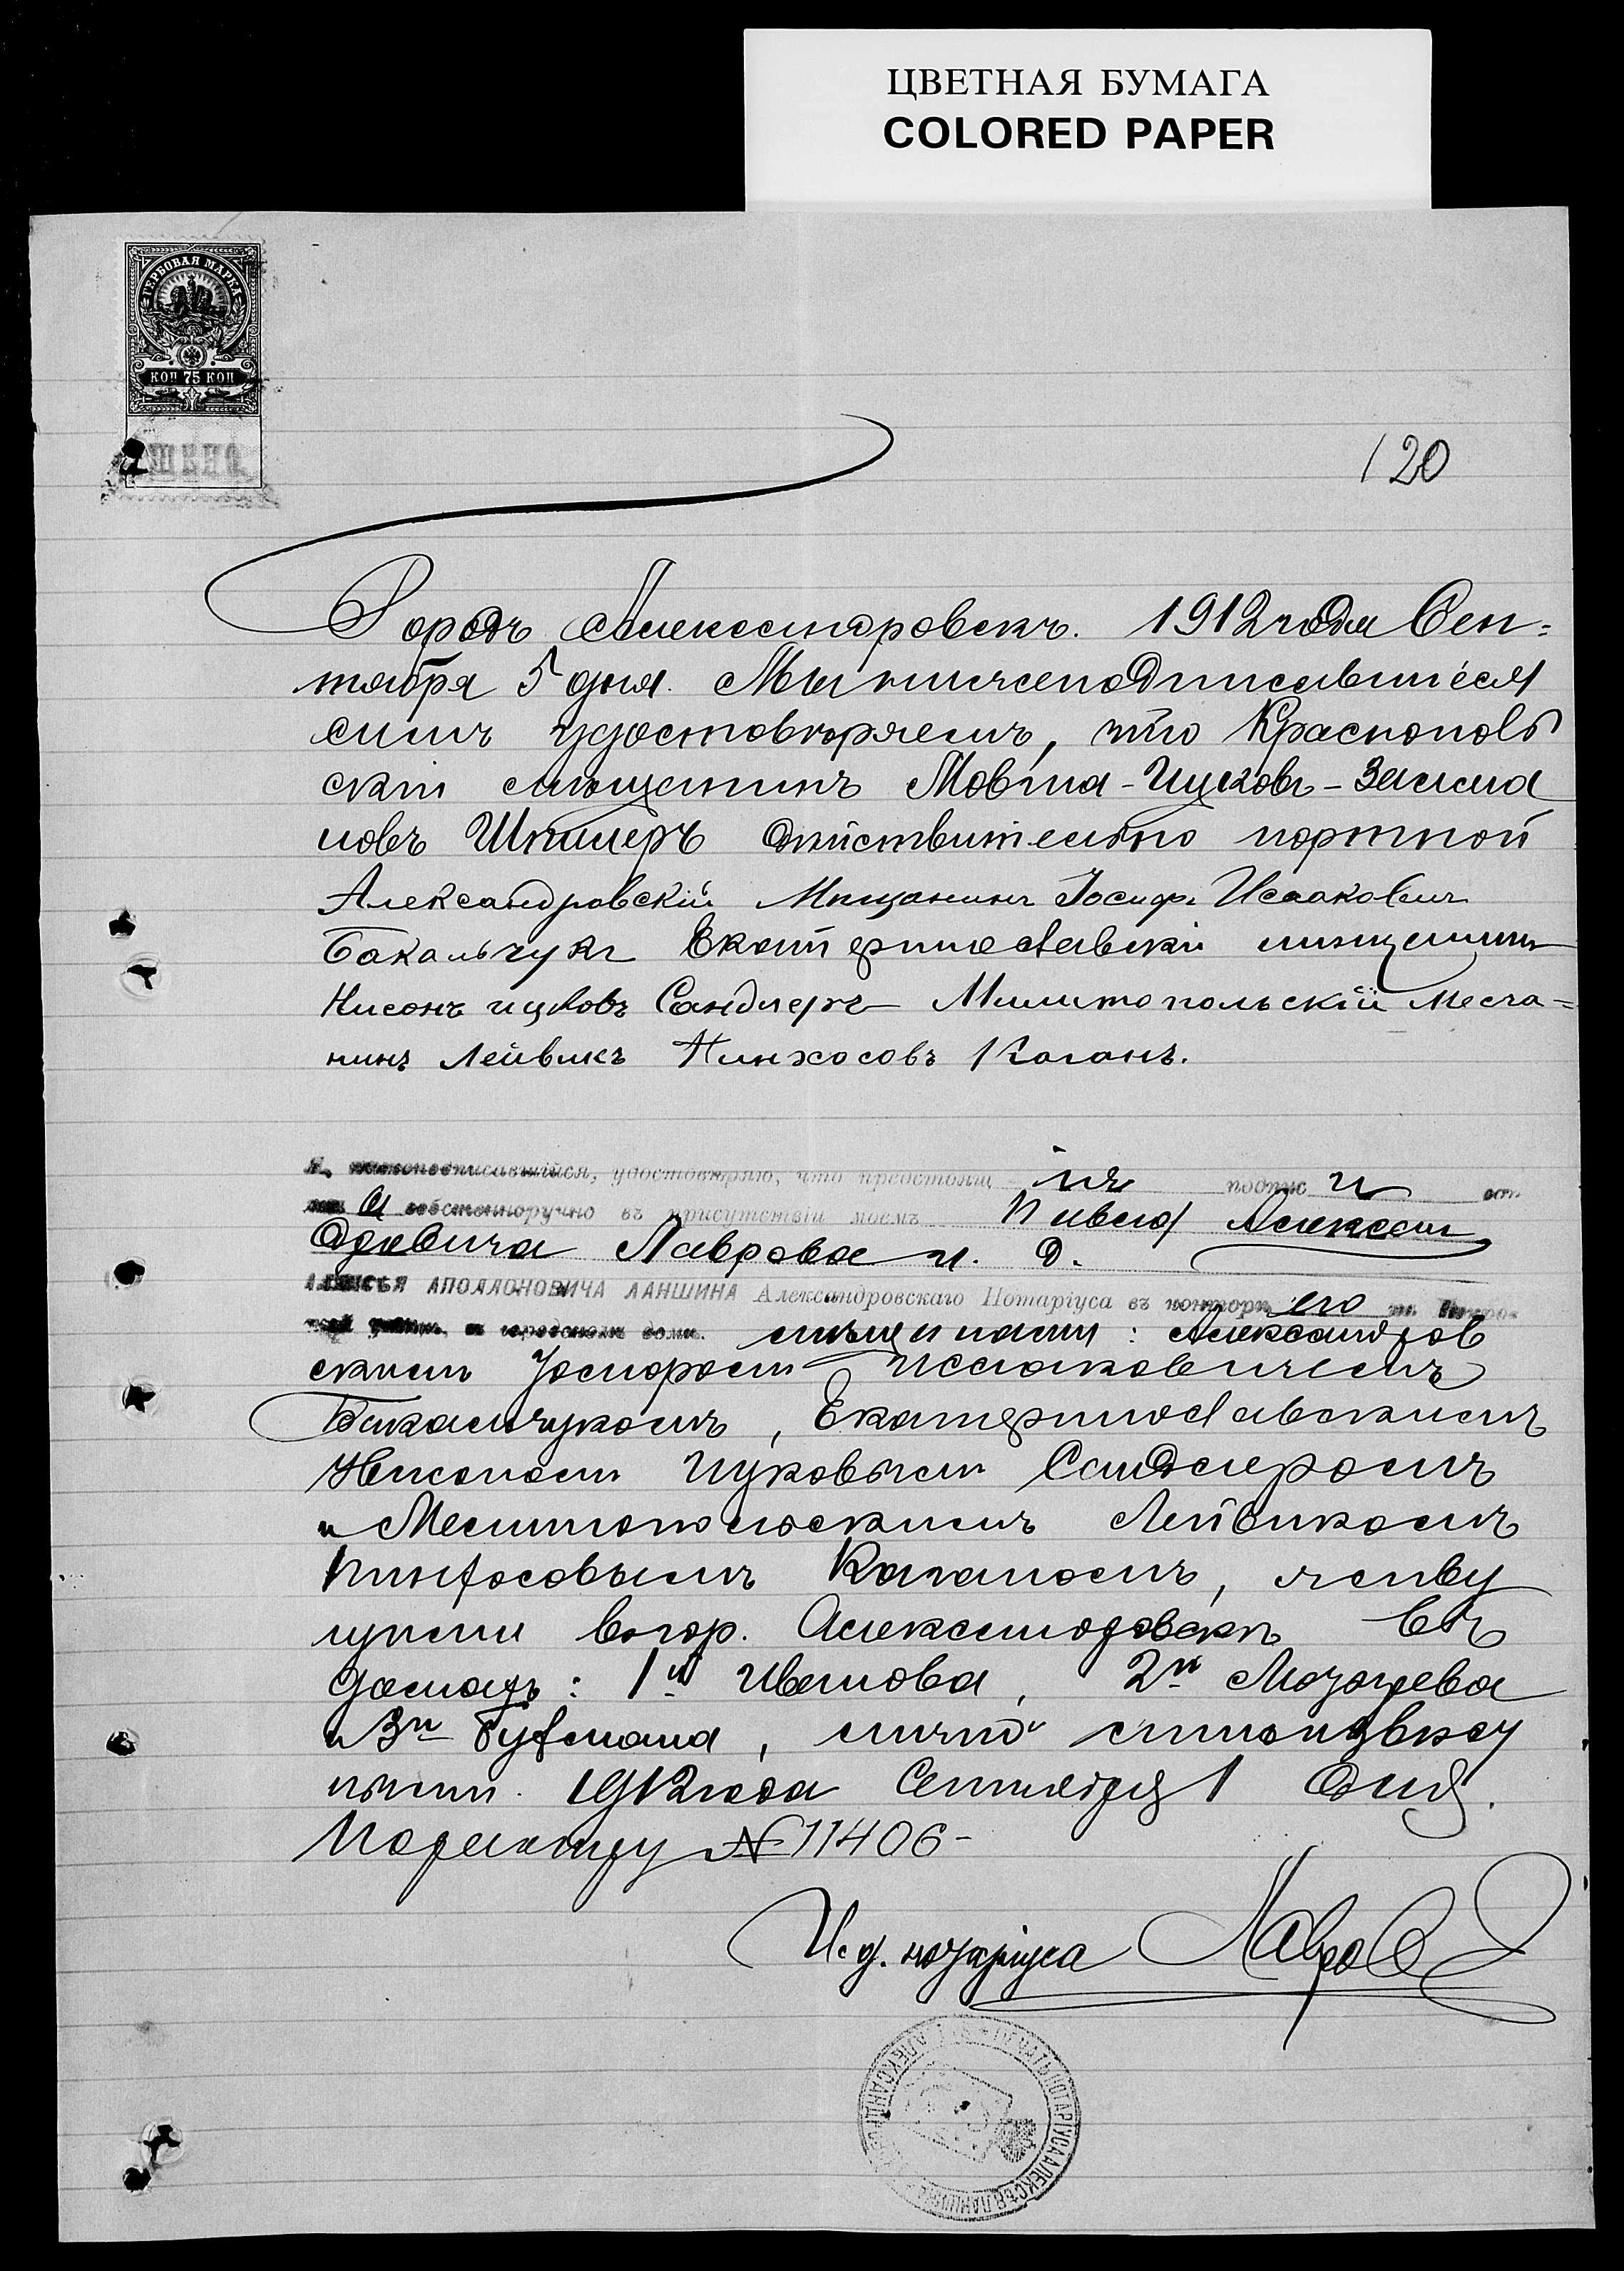 ЦВЕТНАЯ БУМАГА
COLORED PAPER
ГЕРБОВАЯ МАРКА
КОП 75 КОП
120
Городъ Александровскъ. 1912 года Сен-
тября 5 дня. Мы нижеподписавшіеся
симъ удостовѣряемъ, что Краснополь
скій мѣщанинъ Мовша-Ицковъ-Залма
новъ Шпилеръ дѣйствительно портной
Александровскій Мищанинъ Іосифъ Исааковичъ
Бакальчукъ Екатеринославскій мѣщанинъ
Нисонъ ицковъ Сандлеръ Милитопольскій Меща=
нинъ Лейвикъ Пинхосовъ Коганъ.
Я, нижеподписавшійся, удостовѣряю, что предстоящ ія подпис и
собственноручно въ присутствіи моемъ Павла Алексан
дровича Лаврова и. д.
АЛЕКСѢЯ АПОЛЛОНОВИЧА ЛАНШИНА Александровскаго Нотаріуса въ конторѣ его
городскомъ домѣ. мѣщанами: Александров
скимъ Іосифомъ Исааковичемъ
Бакальчукомъ, Екатеринославскимъ
Нисономъ Ицковымъ Сандлеромъ
и Мелитопольскимъ Лейвикомъ
Пинхосовымъ Каганомъ, живу
щими въ гор. Александровскѣ въ
домахъ: 1й Иванова, 2й
и 3й Гуфмана, лично
1912 года Сентября Дня.
По реестру № 11406-
И. д. нотаріуса Лавров
НОТАРІУСА АЛЕКСѢЯ ЛАНШИНА